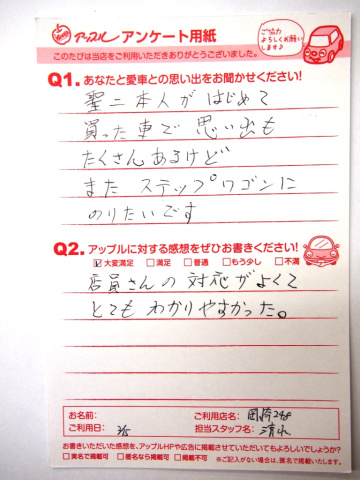 アップル アンケート用紙
ご協力
よろしくお願い
します♪
このたびは当店をご利用いただきありがとうございました。
Q1. あなたと愛車との思い出をお聞かせください!
聖二本人が はじめて
買った車で 思い出も
たくさんあるけど
また ステップワゴンに
のりたいです
Q2. アップルに対する感想をぜひお書きください!
☑大変満足 □満足 □普通 □もう少し □不満
店員さんの 対応がよくて
とても わかりやすかった。
お名前: ご利用店名: 岡崎248
ご利用日: 3/5 担当スタッフ名: 清水
お書きいただいた感想を、アップルHPや広告に掲載させていただいてもよろしいでしょうか?
□実名で掲載可 □匿名なら掲載可 □掲載不可 ※ご記入がない場合は、匿名で掲載いたします。